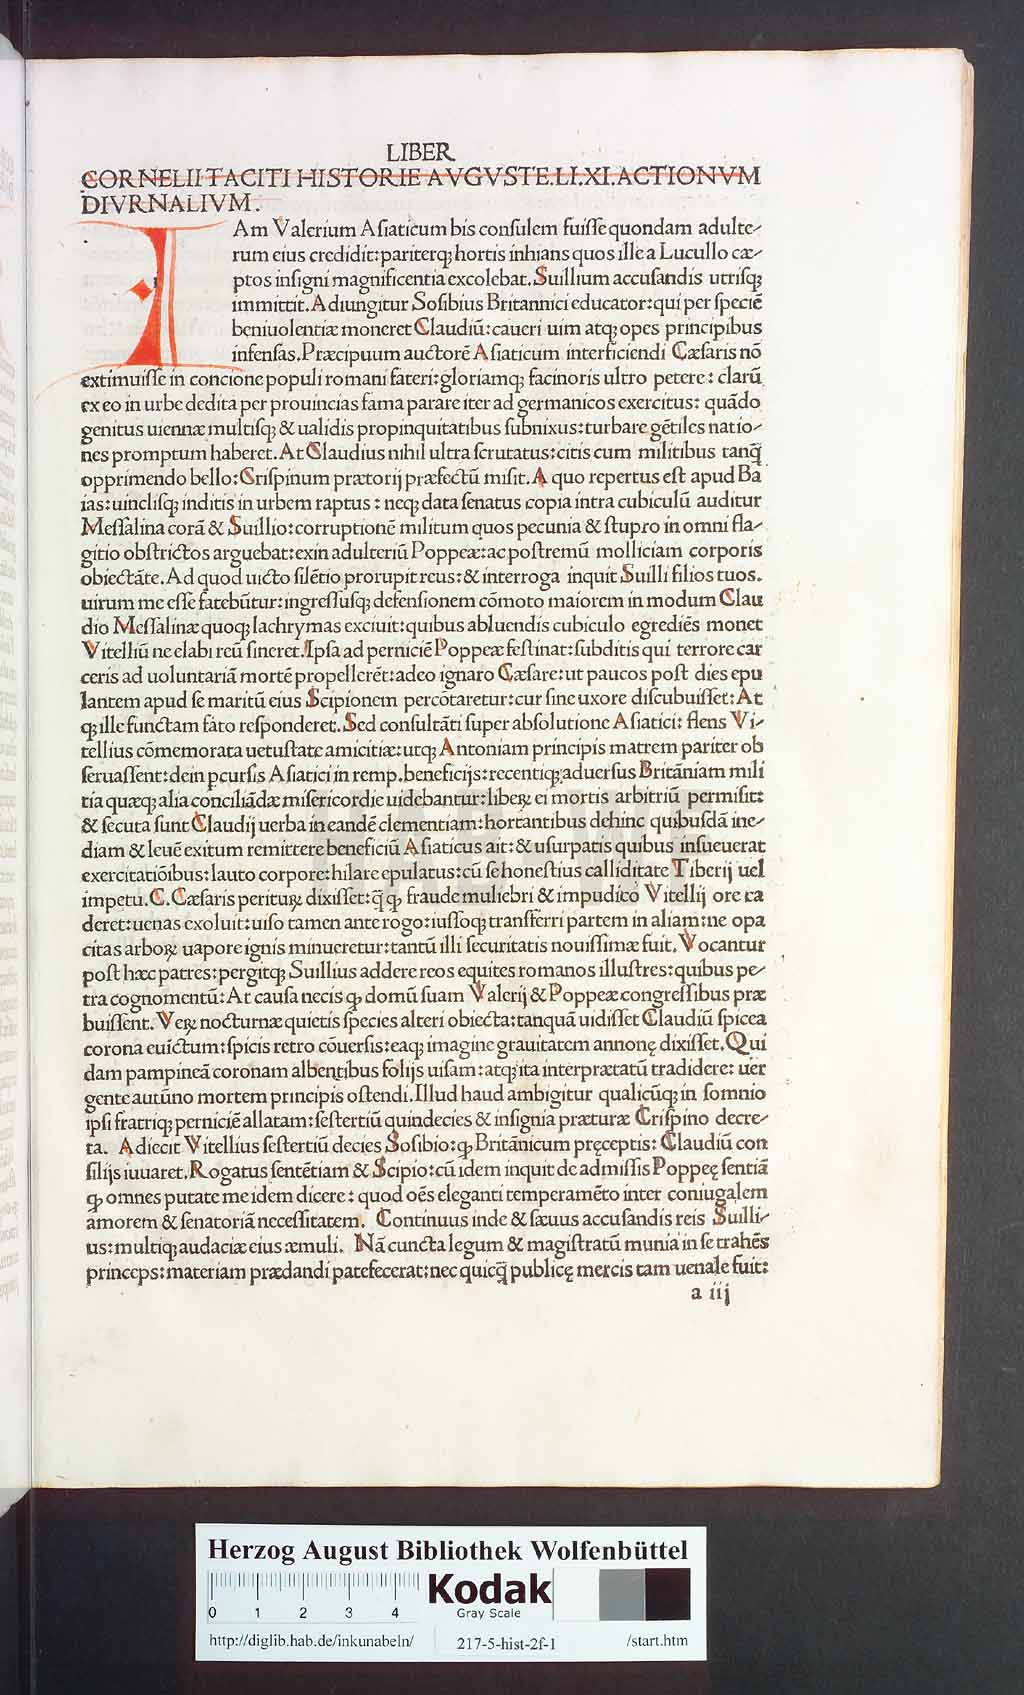 LIBER
CORNELII TACITI HISTORIE AVGVSTE.LI.XI.ACTIONVM
DIVRNALIVM.
IAm Valerium Asiaticum bis consulem fuisse quondam adulte-
rum eius credidit: pariterq; hortis inhians quos ille a Lucullo cæ-
ptos insigni magnificentia excolebat. Suillium accusandis utrisq;
immittit. Adiungitur Sosibius Britannici educator: qui per speciē
beniuolentiæ moneret Claudiū: caueri uim atq; opes principibus
infensas. Præcipuum auctorē Asiaticum interficiendi Cæsaris nō
extimuisse in concione populi romani fateri: gloriamq; facinoris ultro petere: clarū
ex eo in urbe dedita per prouincias fama parare iter ad germanicos exercitus: quādo
genitus uiennæ multisq; & ualidis propinquitatibus subnixus: turbare gētiles natio-
nes promptum haberet. At Claudius nihil ultra scrutatus: citis cum militibus tanq̄
opprimendo bello: Crispinum prætorij præfectū misit. A quo repertus est apud Ba
ias: uinclisq; inditis in urbem raptus: neq; data senatus copia intra cubiculū auditur
Messalina corā & Suillio: corruptionē militum quos pecunia & stupro in omni fla-
gitio obstrictos arguebat: exin adulteriū Poppeæ: ac postremū molliciam corporis
obiectāte. Ad quod uicto silētio prorupit reus: & interroga inquit Suilli filios tuos.
uirum me esse fatebūtur: ingressusq; defensionem cōmoto maiorem in modum Clau
dio Messalinæ quoq; lachrymas exciuit: quibus abluendis cubiculo egrediēs monet
Vitelliū ne elabi reū sineret. Ipsa ad perniciē Poppeæ festinat: subditis qui terrore car
ceris ad uoluntariā mortē propellerēt: adeo ignaro Cæsare: ut paucos post dies epu
lantem apud se maritū eius Scipionem percōtaretur: cur sine uxore discubuisset: At
q; ille functam fato responderet. Sed consultāti super absolutione Asiatici: flens Vi-
tellius cōmemorata uetustate amicitiæ: utq; Antoniam principis matrem pariter ob
seruassent: dein pcursis Asiatici in remp. beneficijs: recentiq; aduersus Britāniam mili
tia quæq; alia conciliādæ misericordie uidebantur: libeꝝ ei mortis arbitriū permisit:
& secuta sunt Claudij uerba in eandē clementiam: hortantibus dehinc quibusdā ine-
diam & leuē exitum remittere beneficiū Asiaticus ait: & usurpatis quibus insueuerat
exercitatiōibus: lauto corpore: hilare epulatus: cū se honestius calliditate Tiberij uel
impetu. C. Cæsaris perituꝝ dixisset: q̄ q; fraude muliebri & impudico Vitellij ore ca
deret: uenas exoluit: uiso tamen ante rogo: iussoq; transferri partem in aliam: ne opa
citas arboꝝ uapore ignis minueretur: tantū illi securitatis nouissimæ fuit. Vocantur
post hæc patres: pergitq; Suillius addere reos equites romanos illustres: quibus pe-
tra cognomentū: At causa necis q; domū suam Valerij & Poppeæ congressibus præ
buissent. Veꝝ nocturnæ quietis species alteri obiecta: tanquā uidisset Claudiū spicea
corona euictum: spicis retro cōuersis: eaq; imagine grauitatem annonę dixisset. Qui
dam pampineā coronam albentibus folijs uisam: atq; ita interprætatū tradidere: uer
gente autūno mortem principis ostendi. Illud haud ambigitur qualicūq; in somnio
ipsi fratriq; perniciē allatam: sestertiū quindecies & insignia præturæ Crispino decre-
ta. Adiecit Vitellius sestertiū decies Sosibio: q; Britānicum pręceptis: Claudiū con
silijs iuuaret. Rogatus sentētiam & Scipio: cū idem inquit de admissis Poppeę sentiā
q; omnes putate me idem dicere: quod oēs eleganti temperamēto inter coniugalem
amorem & senatoriā necessitatem. Continuus inde & sæuus accusandis reis Suilli-
us: multiq; audaciæ eius æmuli. Nā cuncta legum & magistratū munia in se trahēs
princeps: materiam prædandi patefecerat: nec quicq̄ publicę mercis tam uenale fuit:
a iij
Herzog August Bibliothek Wolfenbüttel
0 1 2 3 4
Kodak
Gray Scale
http://diglib.hab.de/inkunabeln/ 217-5-hist-2f-1 /start.htm
HAB WF